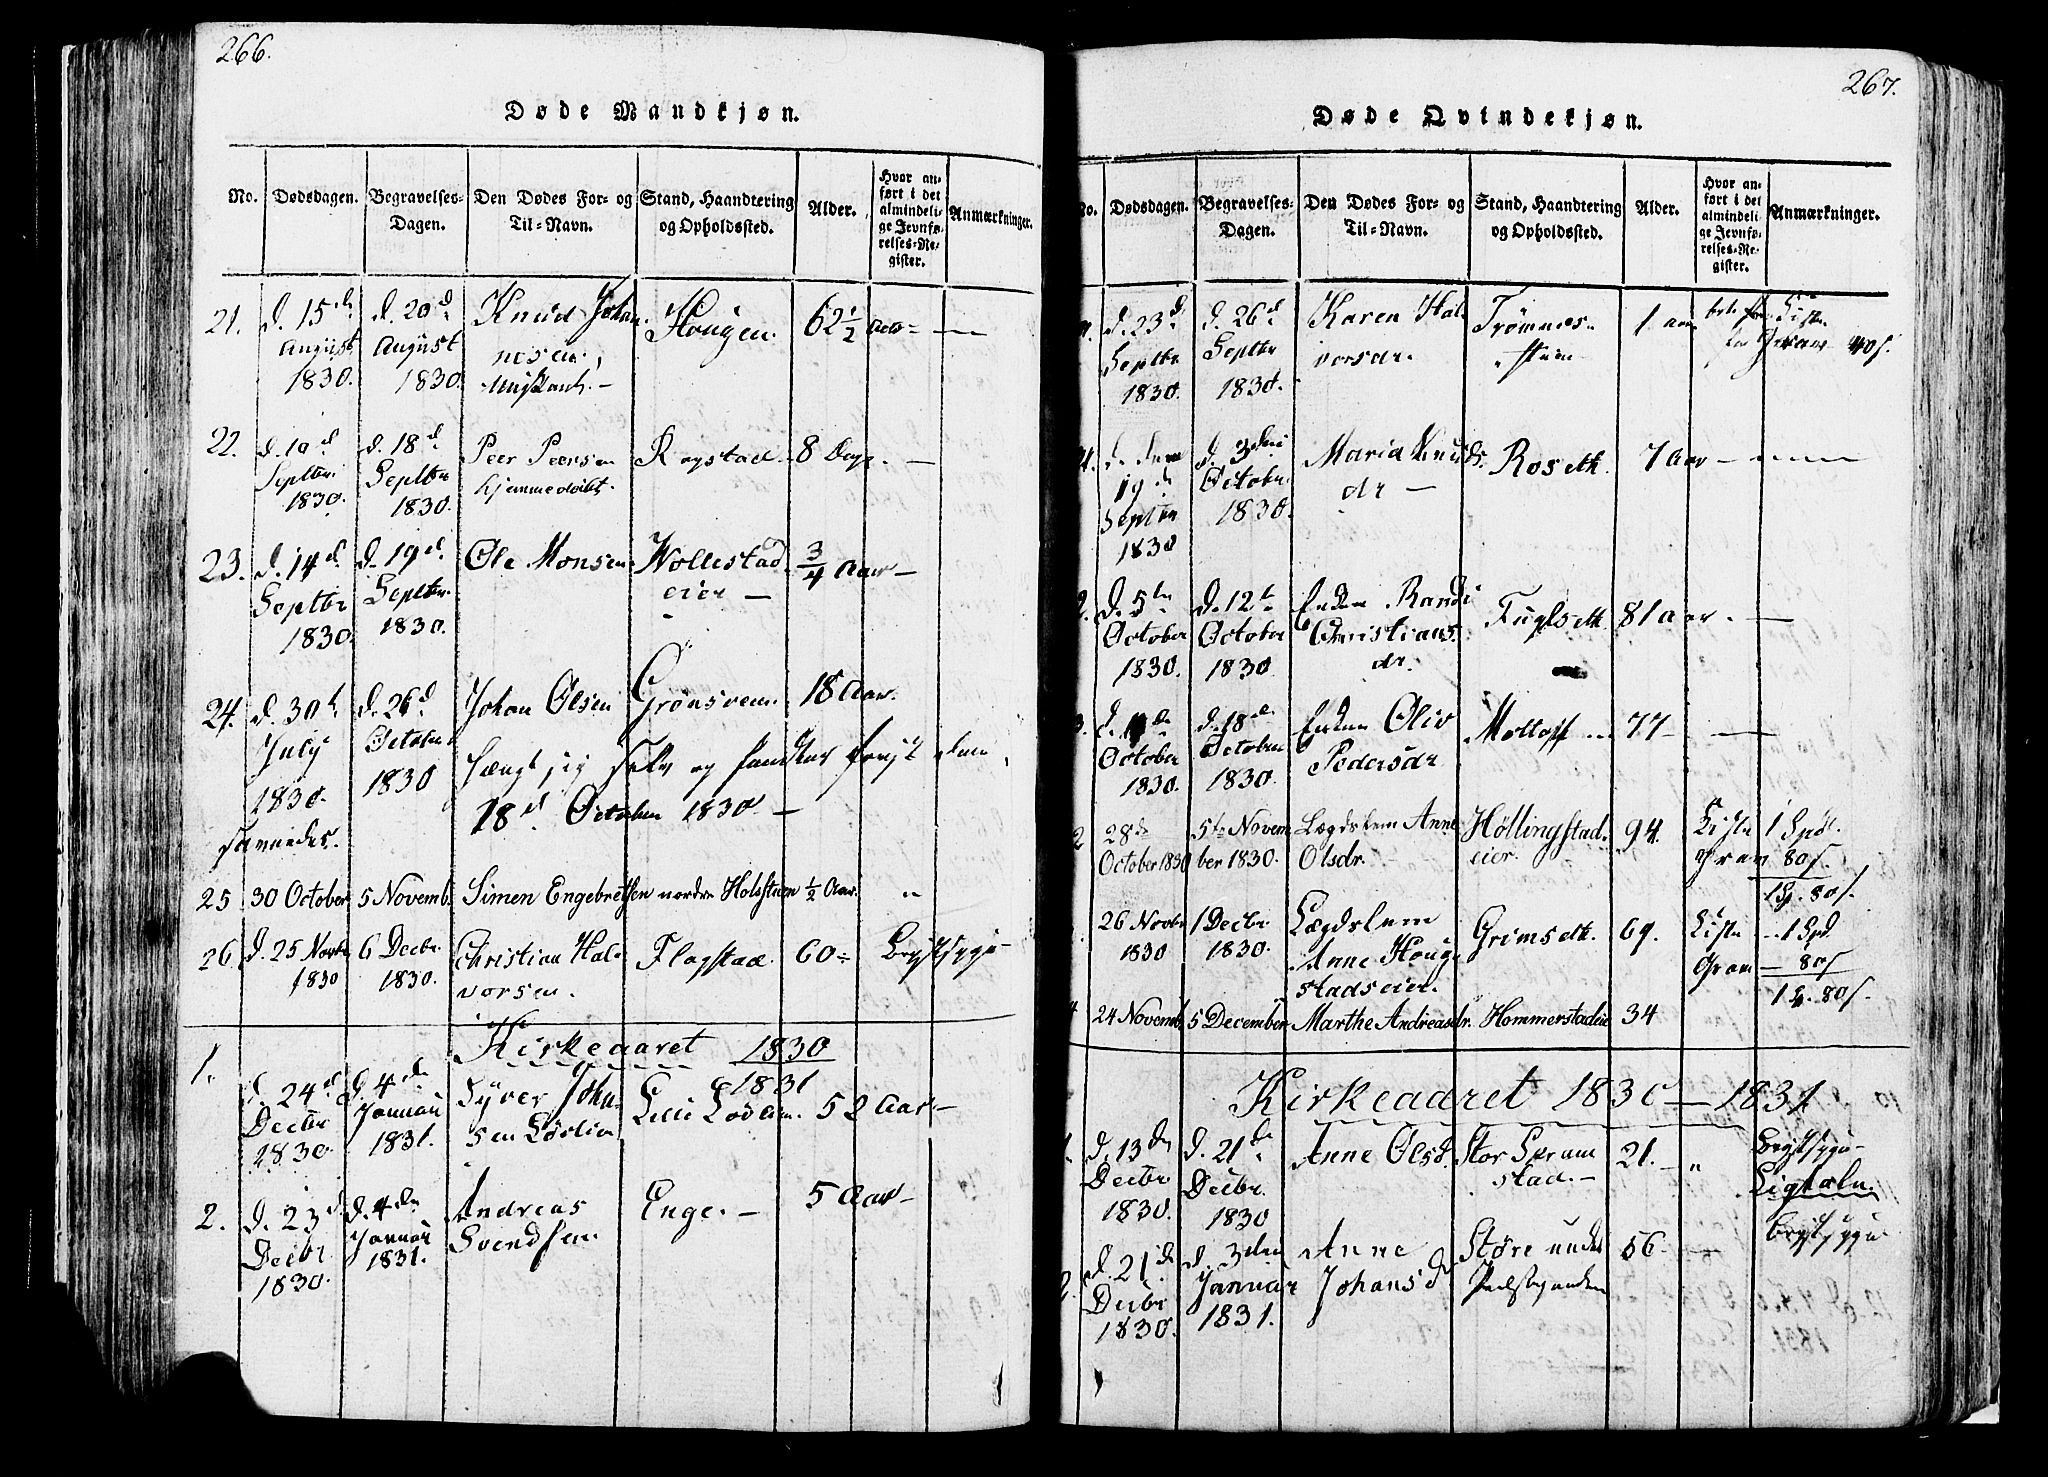 266.
Døde Mandkjøn.
No. Dødsdagen. Begravelses-Dagen. Den Dødes For- og Til-Navn. Stand, Haandtering og Opholdssted. Alder. Hvor anført i det almindelige Jevnførelses-Register. Anmærkninger.
21. d. 15de August 1830. d. 20d August 1830. Knud Johannesen, Haugen. 62½ Aar
22. d. 10d Septbr. 1830. d. 18d Septbr 1830. Peer Peersen hjemmedøbt. Ragstad. 8 Dage.
23. d. 14d Septbr 1830. d. 19d Septbr. 1830. Ole Monsen Wollestad eier 3/4 Aar
24. d. 30t July 1830. d. 26d October 1830 Johan Olsen Grönsveen. 18 Aar.
savnedes. hængt sig selv og fandtes først den
18d October 1830
25 30 October 5 Novemb. Simen Engebretsen nordre Holsstuen ½ Aar. "
26. d. 25 Novbr 1830 6 Decbr. 1830. Christian Halvorsen. Flagstad. 60 Brystsyge
Kirkeaaret 1830 1831
1. d. 24d Decbr 1830 d. 4de Januari 1831. Syver Johnsen Lille Lodem. 52 Aar
2. d. 23d Decbr 1830. d. 4de Januar 1831. Andreas Svendsen Enge. 5 Aar
267.
Døde Qvindekjøn.
No. Dødsdagen. Begravelses-Dagen. Den Dødes For- og Til-Navn. Stand, Haandtering og Opholdssted. Alder. Hvor anført i det almindelige Jevnførelses-Register. Anmærkninger.
d. 23d Septbr 1830. d. 26d Septbr 1830. Karen Halvorsdr. Trømnesstuen 1. aar Kiste Grav 40s.
19de Septbr 1830 d. 3die October 1830. Maria Knudsdr Roseth. 7 Aar
d. 5te October 1830. d. 12te October 1830 Enken Randi Christiansdr. Fuglseth. 81 aar.
October 1830. d. 18de October 1830. Enken Oliv Pedersdr 77
28de October 1830 5te November 1830. Lægdslem Anne Olsdr. Höllingstadeier. 94. Kiste 1 Spd. Grav 80s. 1 Sp. 80s.
26 Novbr 1830 1 Decbr. 1830. Lægdslem Anne Haugstadseier. Grimseth. 69. Kiste 1 Spd. Grav 80s 1 Sp. 80s.
24 Novemb. 5 December Marthe Andreasdr. Hommerstadeie 34
Kirkeaaret 1830 — 1831
1. d. 13de Decbr 1830. d. 21de Decbr. 1830 Anne Olsd. Stor Skramstad. 21. " Brystsyge Ligtale.
2. d. 21de Decbr 1830. d. 3die Januar 1831. Anne Johansd Støre under 56 Brystsyge